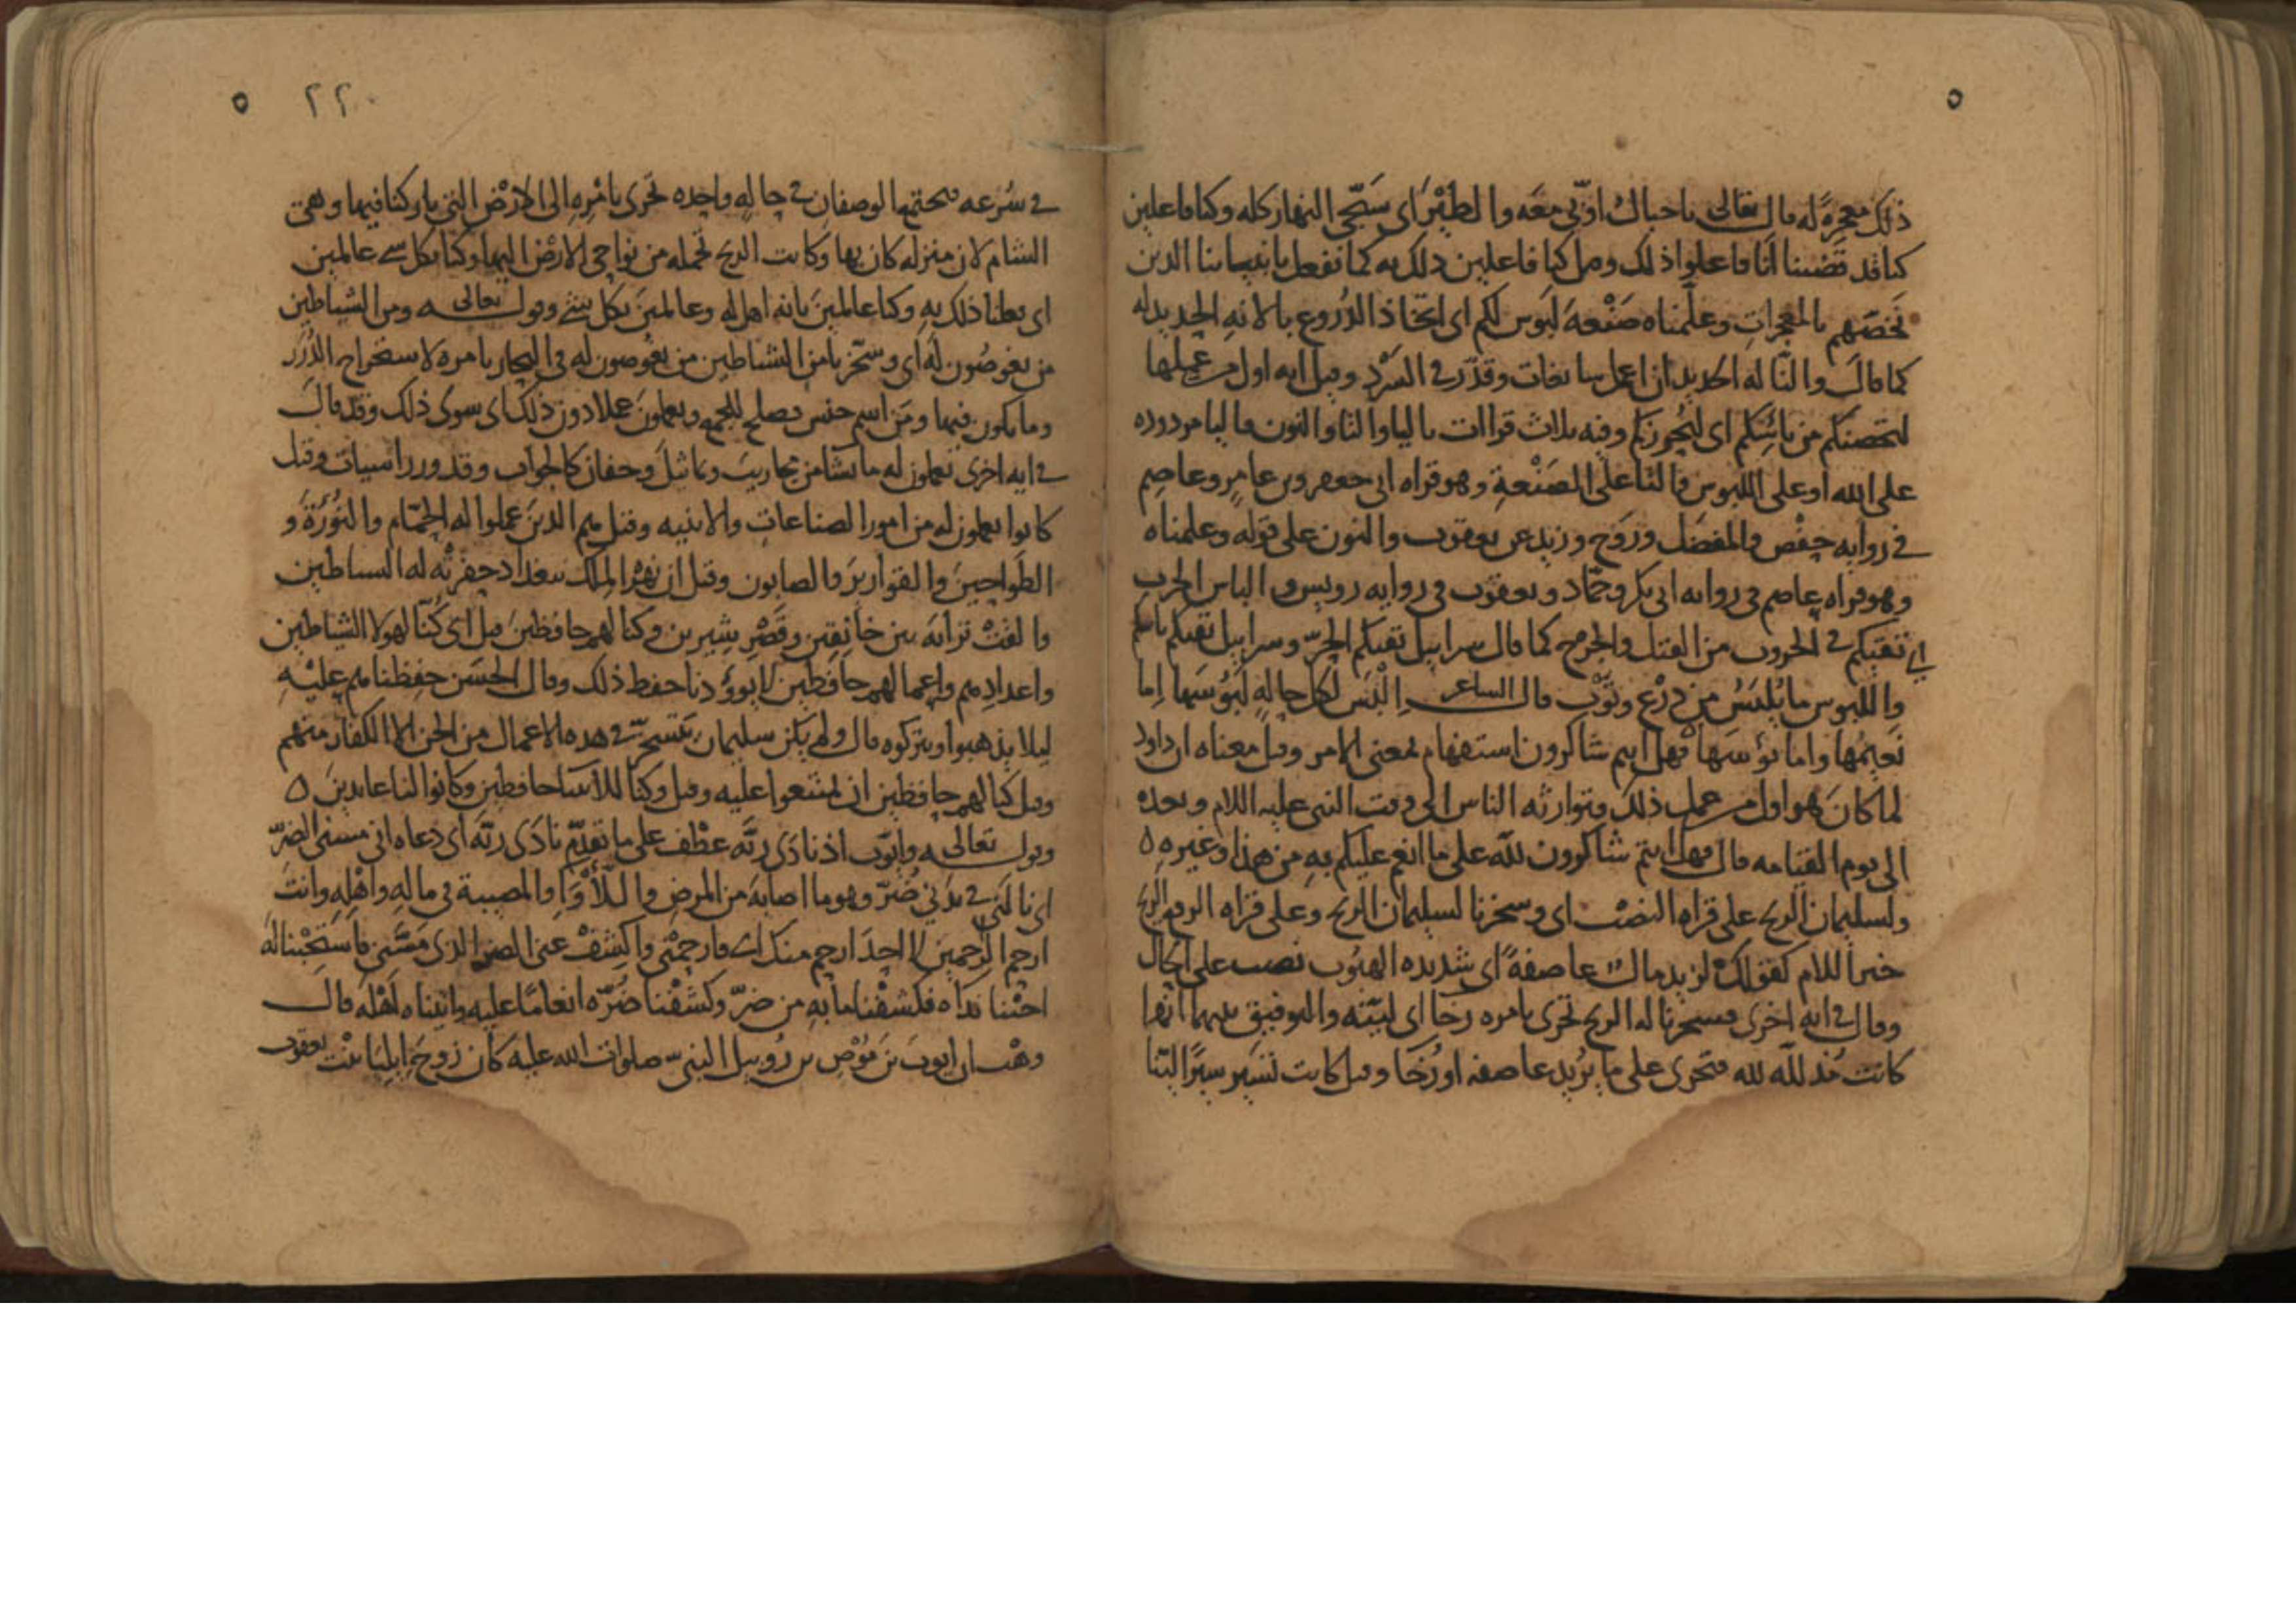 ٥
ذلك معجزة له قال تعالى يا جبال اوّبي معه والطيْرَ اى سَبّحى النهار كله وكنا فاعلين
كنا قد قضينا انّا فاعلوا ذلك وقيل كنا فاعلين ذلك به كما نفعل بانبيائنا الذين
نخصّهم بالمعجزات وعلّمناه صَنْعةَ لَبوس لكم اى اتخاذ الدُروع بالانةِ الحديد له
كما قال والنّا له الحديد ان اعمل سابغات وقدّر في السّرْد وقيل انه اول من عملها
لتحصنكم من بائِسكم اى لتُحرزكم وفيه ثلاث قراات بالياء والتا والنون فاليا مردوده
على الله او على اللبوس والتا على الصَنْعةِ وهو قراه ابى جعفر وبن عامرٍ وعاصِم
في روايه حفْص والمفضل ورَوْح وزيد عن يعقوب والنون على قوله وعلمناه
وهو قراه عاصم فى روايه ابى بكر وحمّاد ويعقوب فى روايه رويس والباس الحرب
اى تقيكم في الحروب من القتل والجرح كما قال سرابيل تقيكم الحرّ وسرابيل تقيكم باسكم
واللبوس ما يُلبَسُ من درْع وثوْب قال الشاعر اِلْبَس لكل حالةٍ لَبُوسَها اِما
نَعيمُها واما بؤسَها فهل انتم شاكرون استفهام بمعنى الامر وقيل معناه ان داود
لما كان هو اول من عمل ذلك وتوارثه الناس الى وقت النبى عليه السلام وبعده
الى يوم القيامه قال فهل انتم شاكرون للّه على ما انعم عليكم بهِ من هذا وغيره ٥
ولسليمان الريح على قراه النصْب اى وسخرنا لسليمان الريح وعلى قراه الرفع الريح
خبر اللام كقولك لزيد مالٌ عاصفةً اى شديده الهبُوب نصب على الحال
وقال في ايه اخرى فسخرنا له الريح تجرى بامره رخا اى ليّنه والتوفيق بينهما انها
كانت مُذللّه لله فتجرى على ما يُريد عاصفه او رُخَا وقيل كانت تسَير سيرًا ليّنا
٥ ٢٢٠
في سُرعه فيجتمع الوصفان في حالهٍ واحده تجرى بامْرهِ الى الارْض التى باركنا فيها وهى
الشام لان منزله كان بها وكانت الريح تحمله من نواحى الارْض اليها وكنا بكل شى عالمين
اى فعلنا ذلك بهِ وكنا عالمينَ بانه اهل له وعالمينَ بكل شئ وقوله تعالى ومن الشياطين
من يغوصُون له اى وسخّرنا من الشياطين من يغوصون له فى البحار بامره لاستخراج الدُرَر
وما يكون فيها ومَن اسم جنس يصلح للجمع ويعملون عملا دون ذلك اى سوى ذلك وقد قال
في ايه اخرى يعملون له ما يشا من محاريبَ وتماثيلَ وجفان كالجواب وقدور راسيات وقيل
كانوا يعملون له من امور الصناعات والابنيه وقيل هم الذين عملوا له الحمّام والنُوْرَةَ و
الطَواحينَ والقواريرَ والصابون وقيل ان نهْر الملك ببغداد حفرتْه له الشياطين
والقتْ ترابَه بين خانِقين وقصْرِ شيرين وكنا لهم حافظين قيل اى كُنّا لهولا الشياطين
واعدادِهم واعمالهم حافظين لا يؤودنا حفظ ذلك وقال الحسن حفِظناهم عليْهِ
ليلا يذهبوا ويتركوه قال ولم يكن سليمان يستسخر في هذه الاعمال من الجن الا الكفار منهم
وقيل كنا لهم حافظين ان يمتنعوا عليه وقيل وكنا للانبيا حافظين وكانوا لنا عابدين ٥
وقوله تعالى وايّوب اذ نادَى ربّه عطْف على ما تقدّم نادَى ربّه اى دعاه انى مسنى الضرّ
اى نالَنى في بدَنى ضُرّ وهو ما اصابه من المرض واللّأْوَاءِ والمصيبة فى مالهِ واهْلِهِ وانتَ
ارحم الرّاحمين لا احدَ ارحم منك اى فارحمْنى واكْشفْ عنى الضر الذى مَسّنى فاستَجبْنا لَهُ
اجبْنا نداه فكشفْنا ما بهِ من ضرّ وكشَفْنا ضُرّه انعامًا عليه واتيناه اهْلَه قال
وهْب ان ايوبَ بنَ مُوْص بن رُوبيل النبىّ صلوات الله عليه كان زوجَ اِيليَا بنْت يعقوب